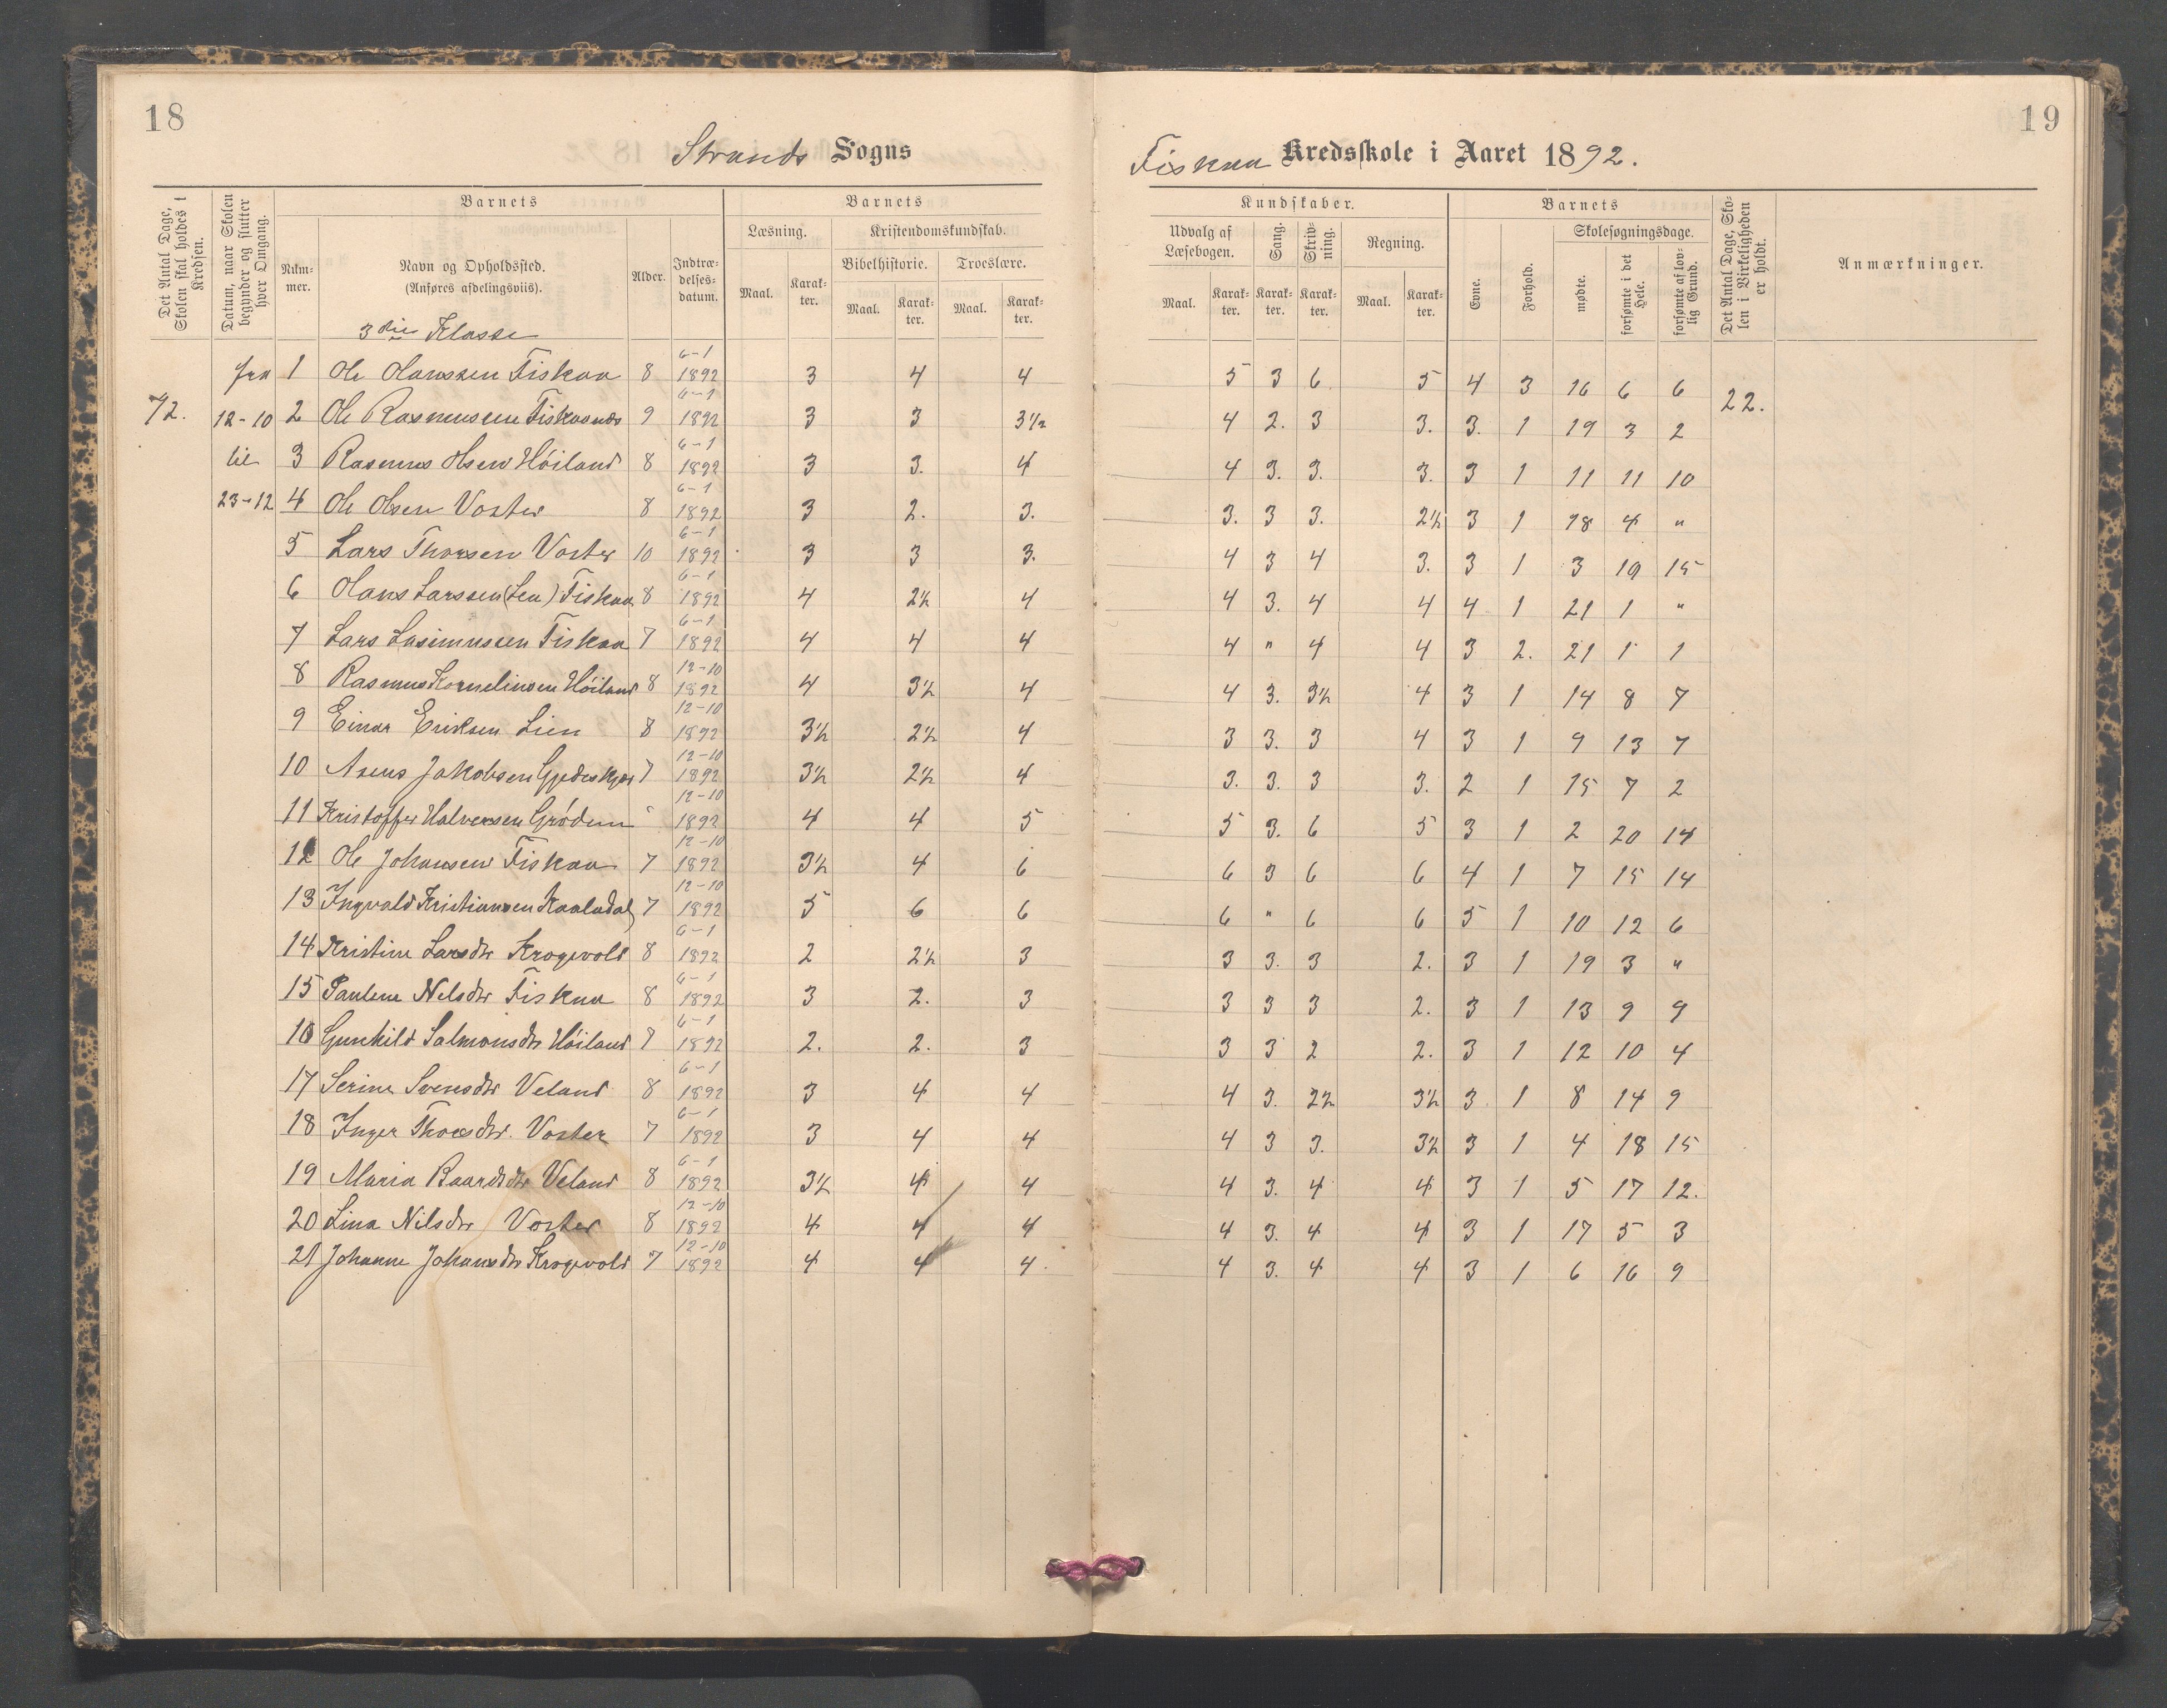 18
19
Strands Sogns
Fiskaa Kredsskole i Aaret 1892.
Det Antal Dage, Skolen skal holdes i Kredsen.
Datum, naar Skolen begynder og slutter hver Omgang.
Barnets
Num-mer.
Navn og Opholdssted. (Anføres afdelingsviis).
Alder.
Indtræ-delses-datum.
Barnets
Læsning.
Maal. Karak-ter.
Kristendomskundskab.
Bibelhistorie. Troeslære.
Maal. Karak-ter. Maal. Karak-ter.
Kundskaber.
Udvalg af Læsebogen. Sang. Skriv-ning. Regning.
Maal. Karak-ter. Karak-ter. Karak-ter. Maal. Karak-ter.
Barnets
Evne. Forhold.
Skolesøgningsdage.
mødte. forsømte i det Hele. forsømte af lov-lig Grund.
Det Antal Dage, Sko-len i Virkeligheden er holdt.
Anmærkninger.
3die Klasse
fra 1 Ole Hanssen Fiskaa 8 6-1 1892 3 4 4 5 3 6 5 4 3 16 6 6 22.
72. 12-10 2 Ole Rasmussen Fiskaanæs 9 6-1 1892 3 3 3½ 4 2. 3 3. 3. 1 19 3 2
til 3 Rasmus Olsen Höiland 8 6-1 1892 3 3. 4 4 3. 3. 3. 3 1 11 11 10
23-12 4 Ole Olsen Voster 8 6-1 1892 3 2. 3. 3. 3 3. 2½ 3 1 18 4 "
5 Lars Thorsen Voster 10 6-1 1892 3 3 3. 4 3 4 3. 3 1 3 19 15
6 Hans Larssen (Len) Fiskaa 8 6-1 1892 4 2½ 4 4 3. 4 4 4 1 21 1 "
7 Lars Lasimussen Fiskaa 7 6-1 1892 4 4 4 4 " 4 4 3 2. 21 1 1
8 Rasmus Kornelinsen Höiland 8 12-10 1892 4 3½ 4 4 3. 3½ 4 3 1 14 8 7
9 Einar Eriksen Lien 8 12-10 1892 3½ 2½ 4 3 3. 3 4 3 1 9 13 7
10 Asens Jakobsen 7 12-10 1892 3½ 2½ 4 3. 3. 3 3. 2 1 15 7 2
11 Kristoffer Halvorsen Grödem " 12-10 1892 4 4 5 5 3. 6 5 3 1 2 20 14
12 Ole Johansen Fiskaa 7 12-10 1892 3½ 4 6 6 3 6 6 4 1 7 15 14
13 Ingvald Kristiansen Kaaladal 7 12-10 1892 5 6 6 6 " 6 6 5 1 10 12 6
14 Kristine Larsdtr Krogevold 8 6-1 1892 2 2½ 3 3 3. 3 2. 3 1 19 3 "
15 Paulene Nelsdtr Fiskaa 8 6-1 1892 3 2. 3 3 3 3 2. 3 1 13 9 9
16 Gunhild Salmonsdtr Höiland 7 6-1 1892 2. 2. 3 3 3 2 2. 3 1 12 10 4
17 Serine Svensdtr Veland 8 6-1 1892 3 4 4 4 3. 2½ 3½ 3 1 8 14 9
18 Inger Thorsdtr. Voster 7 6-1 1892 3 4 4 4 3 3. 3½ 3 1 4 18 15
19 Maria Baardsdtr Veland 8 6-1 1892 3½ 4 4 4 3. 4 4 3 1 5 17 12.
20 Lina Nilsdtr Voster 8 12-10 1892 4 4 4 4 3. 4 4 3 1 17 5 3
21 Johanne Johansdtr Krogevold 7 12-10 1892 4 4 4. 4 3. 4 4 3 1 6 16 9